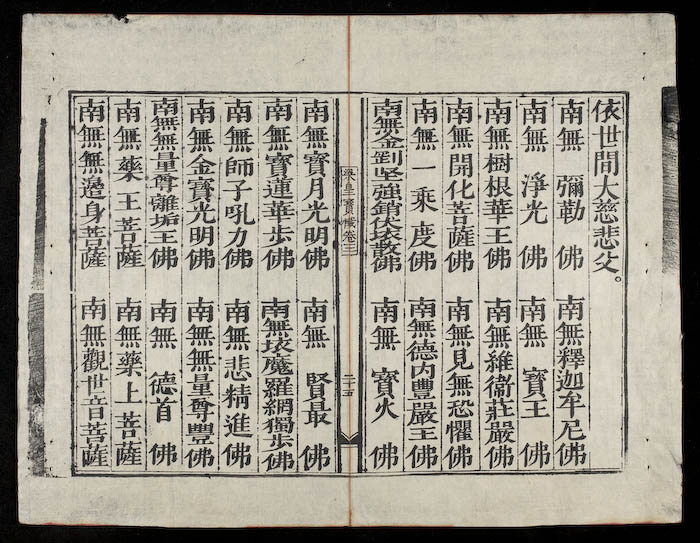 依世間大慈悲父。
南無彌勒佛 南無釋迦牟尼佛
南無淨光佛 南無寶王佛
南無樹根華王佛 南無維衞莊嚴佛
南無開化菩薩佛 南無見無恐懼佛
南無一乘度佛 南無德內豐嚴王佛
南無金剛堅強銷伏壞散佛 南無寶火佛
梁皇寶懺卷三 二十五
南無寶月光明佛 南無賢最佛
南無寶蓮華步佛 南無壞魔羅網獨步佛
南無師子吼力佛 南無悲精進佛
南無金寶光明佛 南無無量尊豐佛
南無無量尊離垢王佛 南無德首佛
南無藥王菩薩 南無藥上菩薩
南無無邊身菩薩 南無觀世音菩薩